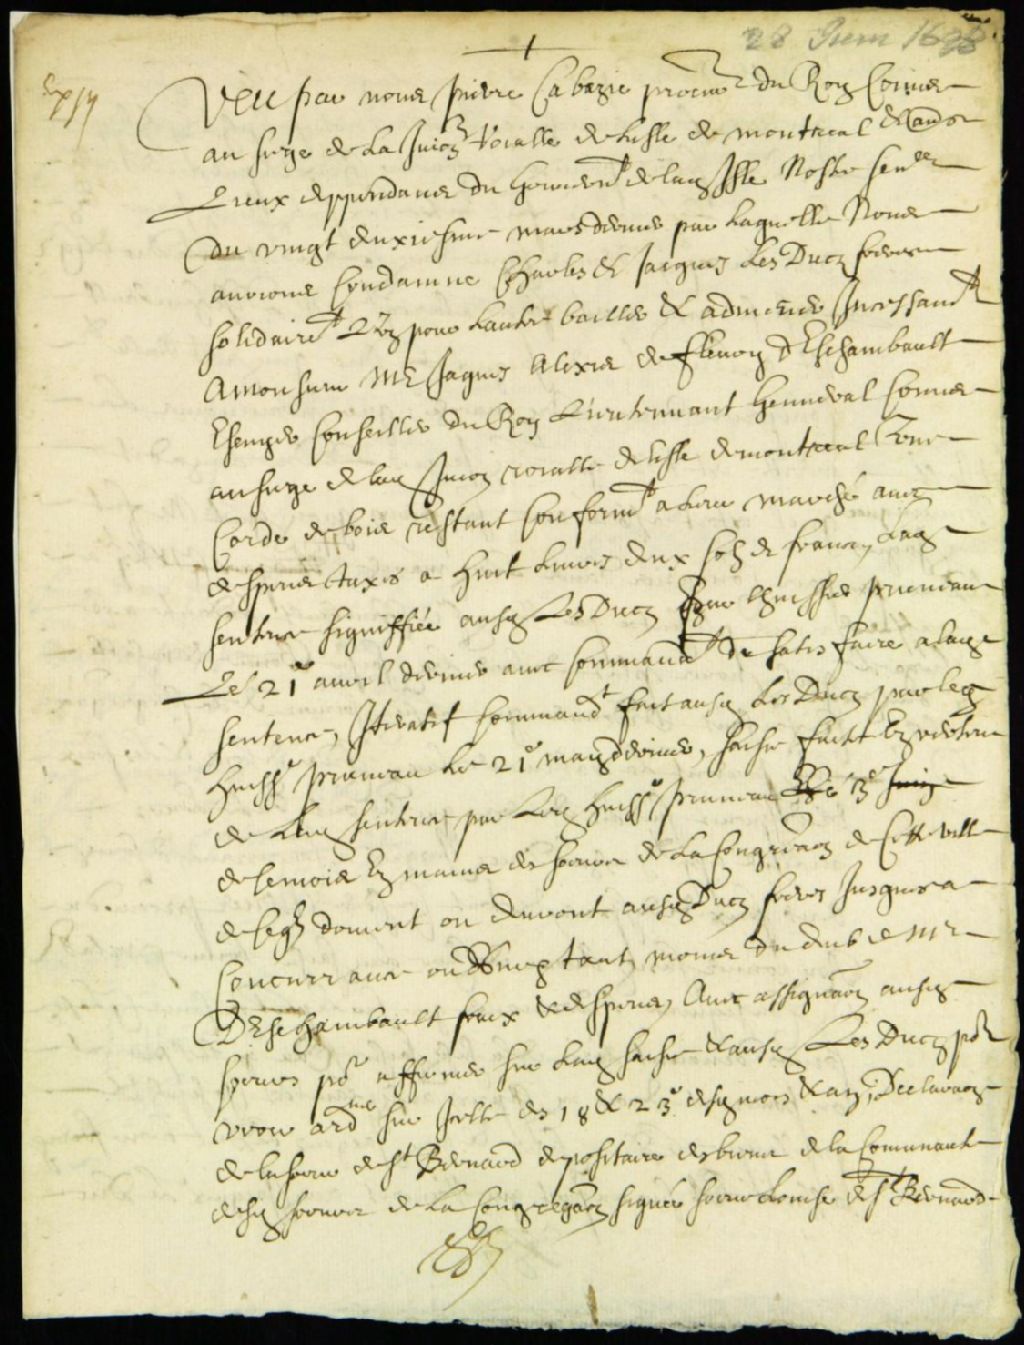 28 Juin 1698.
Veu par nous pierre Cabazie procur du Roy Commis
au siege de la Juron Royalle de lisle de montreal &
Lieux deppendans du gouvernt de lad Isle Nostre sence
du vingt deuxiesme mars dernier par laquelle Nous
aurions Condamné Charles & Jacques Les Ducz freres
solidairet pour Lautre bailler & admener Incessamt
A monsieur Me Jaques Alexis de fleury dEschambault
Escuyer Conseiller du Roy Lieutennant genneral Commis
au siege de lad Juron royalle de lisle de montreal
Corde de bois restant Conformt a leur marché avec
despens taxés a huit Livres deux solz de france, Lad
sentence signiffiée ausd Les Ducz par lhuissier pruneau
Le 21e avril dernier avec Commandt de satisfaire a lad
sentence, Iteratif Commandt fait ausd Les Ducz par led
huissr pruneau le 21e may dernier, saisie faitte En vertu
de Lad sentence par Led huissr pruneau Le 13e Juin
de ce mois Ez mains des soeurs de La Congregaon de Cette ville
de ce quilz doivent ou devront ausd Ducz freres Jusques a
Concurrance ou tant moins du deub de Mr
DEschambault fraix & despens, Avec assignaon ausd
soeurs pr affirmer sur Lad saisie & ausd Les Ducz pr
veoir ordner sur Icelle des 18 & 23e desd mois & an, Declaraon
de la soeur de st Bernard depositaire des biens de la Communauté
desd soeurs de La Congregaon signée soeur Louise de st Bernard